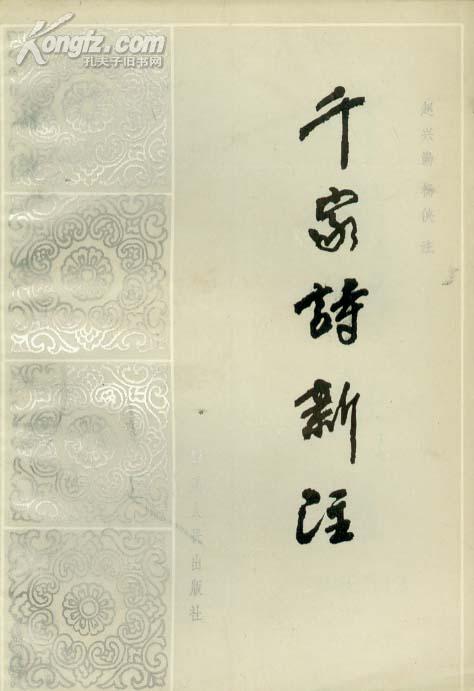 Kongfz.com
孔夫子旧书网
千家詩新注
赵兴勤 杨侠 注
人民出版社